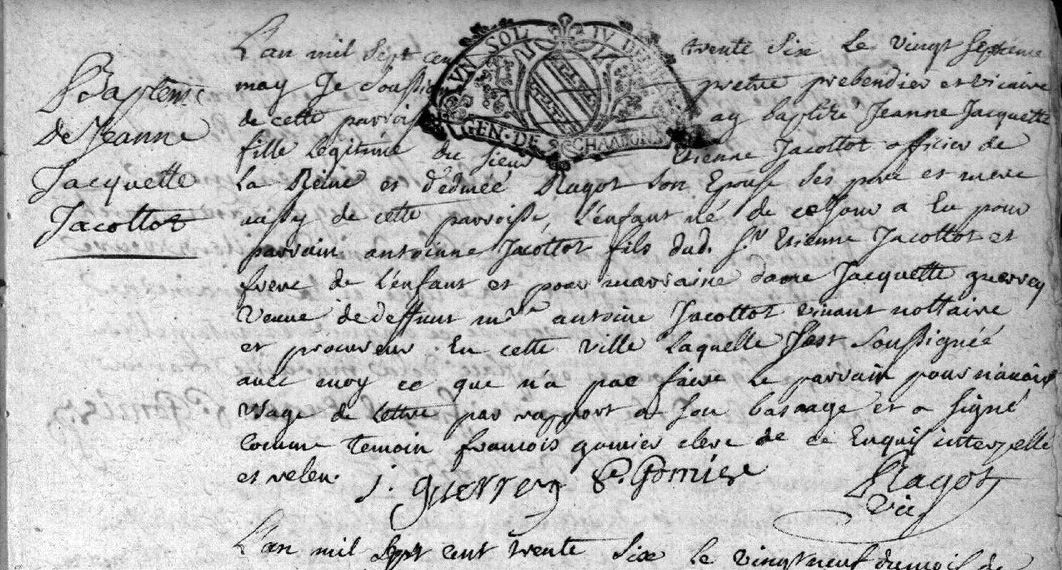 Baptême
de Jeanne
Jacquette
Jacottot
UN SOL IV DEN
GEN. DE CHAALONS
L'an mil sept cent trente six le vingt septième
may Je soussigné prêtre prebendier et vicaire
de cette parroisse ay baptisé Jeanne Jacquette
fille legitime du sieur Etienne Jacottot officier de
la Reine et d'edmée Ragot son Epouse ses pere et mere
aussy de cette parroisse, L'enfant né de ce Jour a Eu pour
parrain antoinne Jacottot fils dud. Sr Etienne Jacottot et
frere de L'enfant et pour marraine dame Jacquette guerrey
veuve de deffunt me antoine Jacottot vivant nottaire
et procureur En cette ville laquelle s'est soussignée
avec moy ce que n'a pas faire le parrain pour n'avoir
usage de lettre par rapport a son bas aage et a signé
comme temoin francois gomier eleve de ce Enquis interpellé
et
J. Guerrey Ragot
vic.
L'an mil sept cent trente six le vingt neuf du mois de